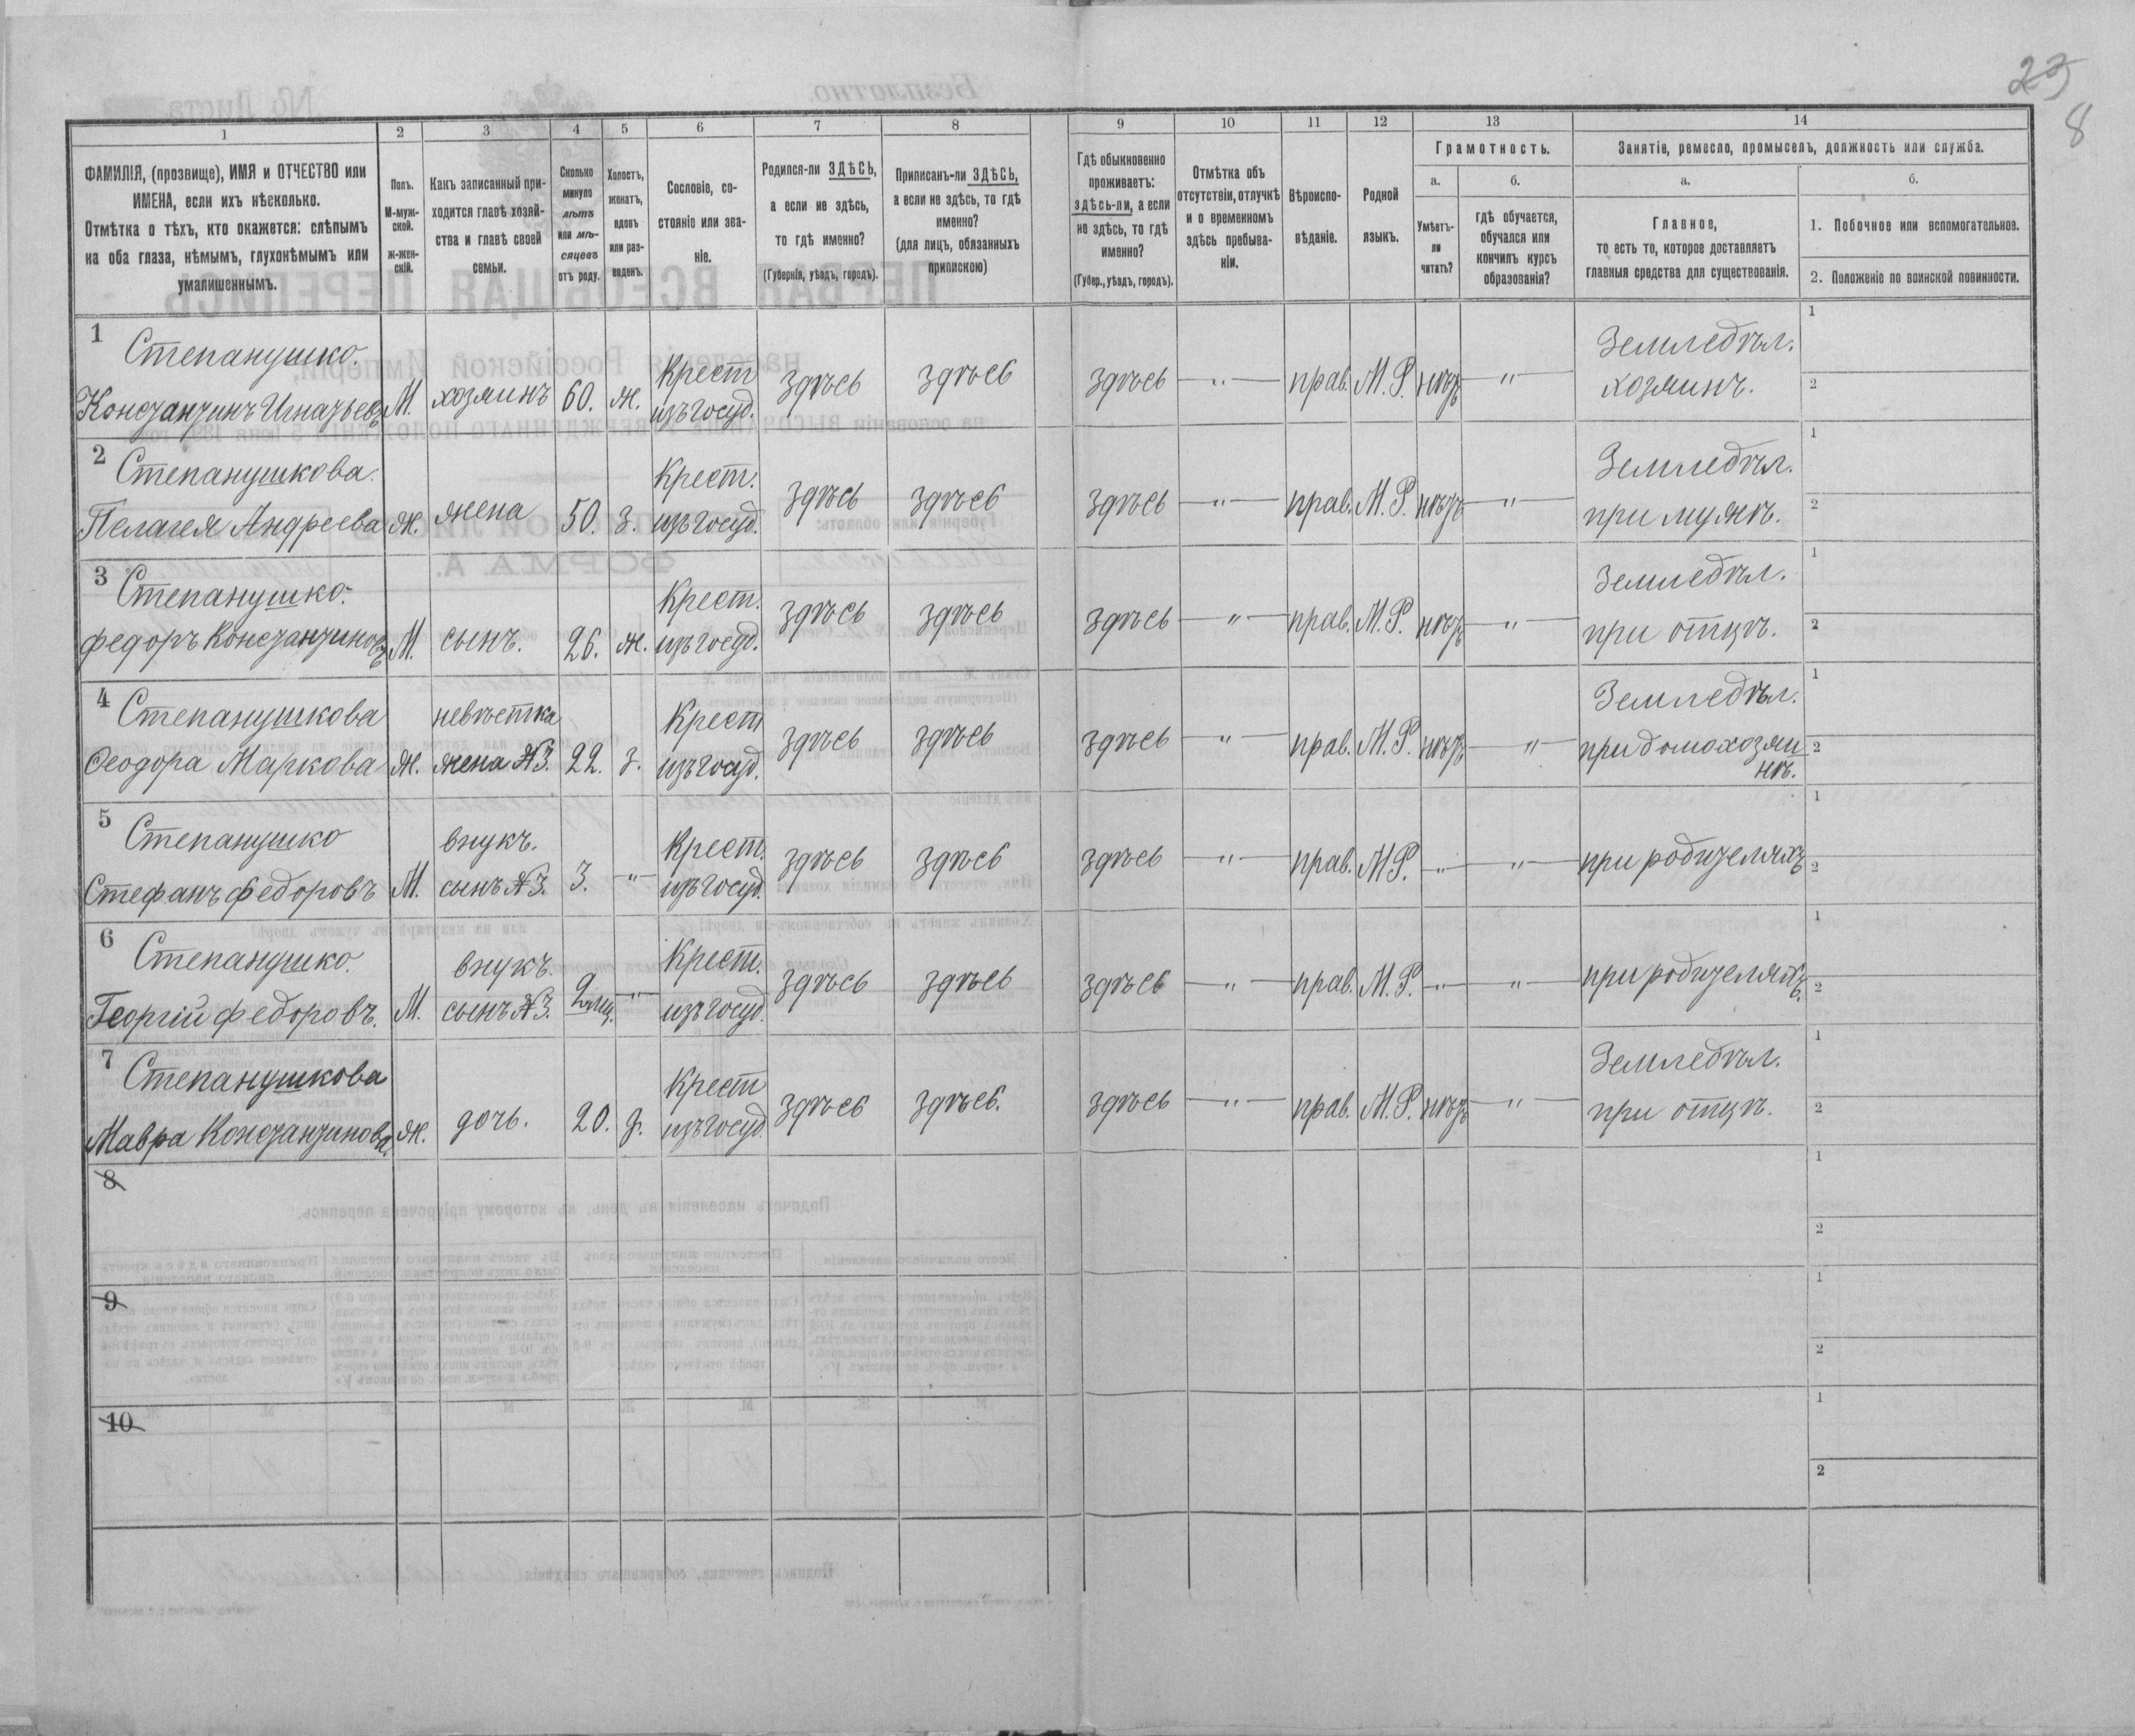 23
8
1 2 3 4 5 6 7 8 9 10 11 12 13 14
ФАМИЛІЯ, (прозвище), ИМЯ и ОТЧЕСТВО или
ИМЕНА, если ихъ нѣсколько.
Отмѣтка о тѣхъ, кто окажется: слѣпымъ
на оба глаза, нѣмымъ, глухонѣмымъ или
умалишеннымъ.
Полъ.
М-муж-
ской.
Ж-жен-
скій.
Какъ записанный при-
ходится главѣ хозяй-
ства и главѣ своей
семьи.
Сколько
минуло
лѣтъ
или мѣ-
сяцевъ
отъ роду.
Холостъ,
женатъ,
вдовъ
или раз-
веденъ.
Сословіе, со-
стояніе или зва-
ніе.
Родился-ли ЗДѢСЬ,
а если не здѣсь,
то гдѣ именно?
(Губернія, уѣздъ, городъ).
Приписанъ-ли ЗДѢСЬ,
а если не здѣсь, то гдѣ
именно?
(для лицъ, обязанныхъ
припискою)
Гдѣ обыкновенно
проживаетъ:
здѣсь-ли, а если
не здѣсь, то гдѣ
именно?
(Губер., уѣздъ, городъ).
Отмѣтка объ
отсутствіи, отлучкѣ
и о временномъ
здѣсь пребыва-
ніи.
Вѣроиспо-
вѣданіе.
Родной
языкъ.
Грамотность.
а.
Умѣетъ-
ли
читать?
б.
гдѣ обучается,
обучался или
кончилъ курсъ
образованія?
Занятіе, ремесло, промыселъ, должность или служба.
а.
Главное,
то есть то, которое доставляетъ
главныя средства для существованія.
б.
1. Побочное или вспомогательное.
2. Положеніе по воинской повинности.
1 Степанушко. Крест Земледѣл. 1
Константинъ Игнатьевъ М. хозяинъ 60. ж. изъ госуд. здѣсь здѣсь здѣсь —"— прав. М.Р. нѣтъ —"— хозяинъ. 2
2 Степанушкова. Крест. Земледѣл. 1
Пелагея Андреева ж. жена 50. з. изъ госуд. здѣсь здѣсь здѣсь —"— прав. М.Р. нѣтъ —"— при мужѣ. 2
3 Степанушко. Крест. Земледѣл. 1
Федоръ Константиновъ М. сынъ. 26. ж. изъ госуд. здѣсь здѣсь здѣсь —"— прав. М.Р. нѣтъ —"— при отцѣ. 2
4 Степанушкова невѣстка Крест Земледѣл. 1
Феодора Маркова ж. жена №3. 22. з. изъ госуд. здѣсь здѣсь здѣсь —"— прав. М.Р. нѣтъ —"— при домохозяи 2
нѣ.
5 Степанушко внукъ. Крест. 1
Стефанъ Федоровъ М. сынъ №3. 3. —"— изъ госуд. здѣсь здѣсь здѣсь —"— прав. М.Р. —"— —"— при родителяхъ 2
6 Степанушко. внукъ. Крест. 1
Георгій Федоровъ. М. сынъ №3. 2 мц. —"— изъ госуд. здѣсь здѣсь здѣсь —"— прав. М.Р. —"— —"— при родителяхъ. 2
7 Степанушкова Крест Земледѣл. 1
Мавра Константинова. ж. дочь. 20. д. изъ госуд. здѣсь здѣсь. здѣсь —"— прав. М.Р. нѣтъ —"— при отцѣ. 2
8 1
2
9 1
2
10 1
2